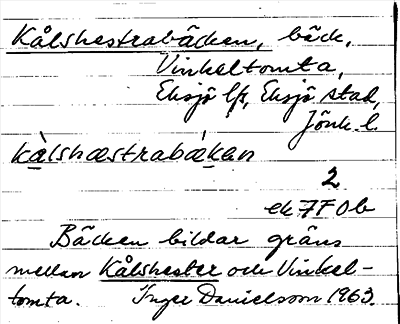 Kålshestrabäcken, bäck,
Vinkeltomta,
Eksjö lfs, Eksjö stad,
Jönk. l.
kàlshæstrabǽkan
2
ek 7F 0b
Bäcken bildar gräns
mellan Kålshester och Vinkel-
tomta. Inger Danielsson 1963.